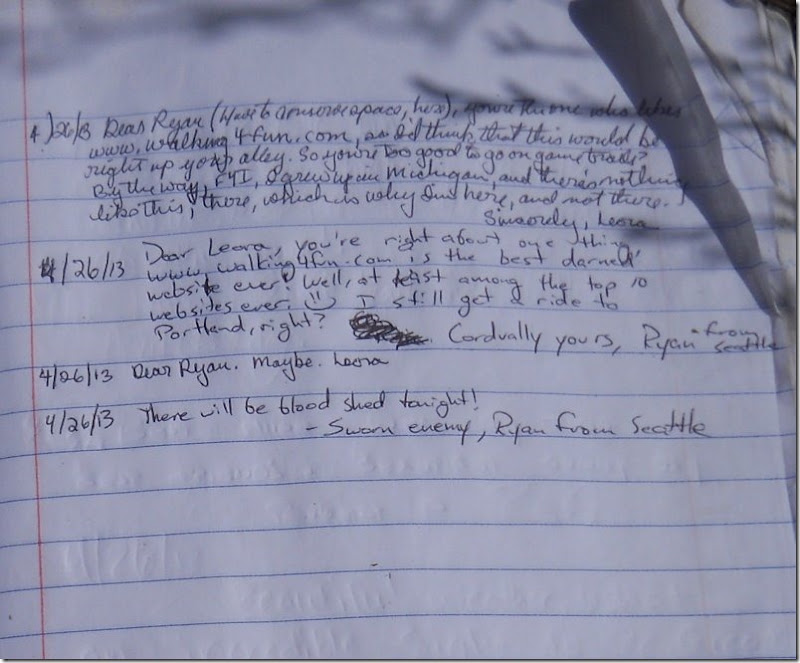 4/26/13 Dear Ryan (Have to conserve space, here), you're the one who likes
www.walking4fun.com, so I'd think that this would be
right up your alley. So you're too good to go on game trails?
By the way, FYI, I grew up in Michigan, and there's nothing
like this, there, which is why I'm here, and not there.
Sincerely, Leora
4/26/13 Dear Leora, you're right about one thing
www.walking4fun.com is the best darned
website ever! Well, at least among the top 10
websites ever. I still get a ride to
Portland, right? Cordually yours, Ryan from
Seattle
4/26/13 Dear Ryan. Maybe. Leora
4/26/13 There will be blood shed tonight!
- Sworn enemy, Ryan from Seattle